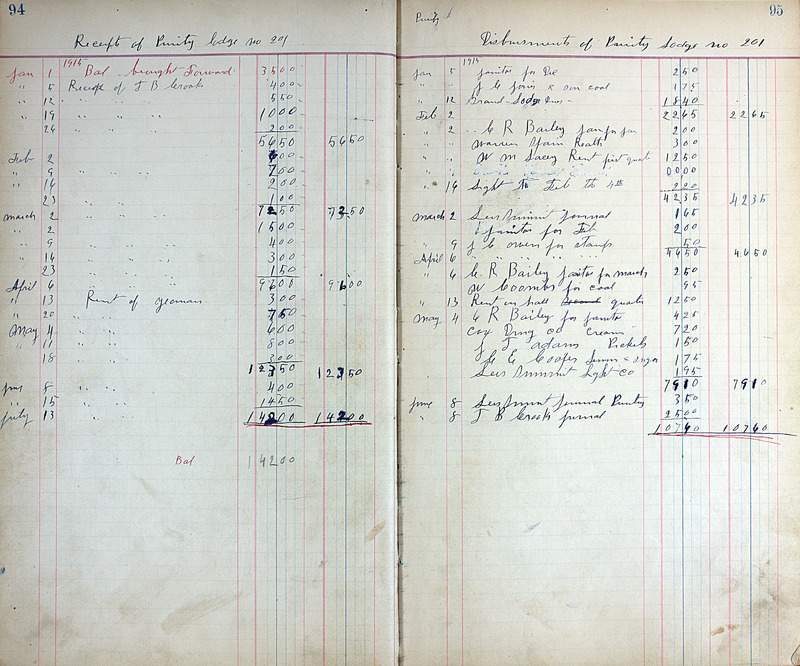 94
Receipts of Purity lodge no 201
1915
Jan 1 Bal brought Forward 3500
" 5 Receipt of J B Crooks 400
" 12 " " " 550
" 19 " " " 1000
" 26 200
5650 5650
Feb 2 600
" 9 " " 700
" 16 " " 200
23 100
7250 7250
March 2 " "
" 2 1500
" 9 " " " 400
" 16 " " 300
23 150
April 6 " " 9600 9600
" 13 Receipt of yeomans 300
" 20 " " " 750
May 4 " " 600
" 11 " " 800
18 " " 300
12350 12350
June 8 " " 400
" 15 " " 1450
July 13 " " 14200 14200
Bal 14200
95
Purity
Disbursments of Purity Lodge no 201
1915
Jan 5 janitor for Dec 250
" " J C coal 175
" 12 Grand Lodge Dues 1840
Feb 2 2265 2265
" 2 C R Bailey Jan for jan 200
" " Warren 300
" " W M Lacey Rent first quart 1250
0000
" 16 Light Feb 4th 220
4235 4235
March 2 Lees Summit Journal 165
janitor for Feb 200
" 9 J C for stamps 50
April 6 " " " " 4650 4650
" 6 C R Bailey janitor for march 250
W Coombs for coal 95
" 13 Rent on hall quarter 1250
May 4 C R Bailey for janitor 425
Cox Drug co Cream 720
J J adams Pickels 150
C E Cooper 175
Lees Summit Light co 195
7910 7910
June 8 Lees Sumit Jurnal Purity 350
8 J B Crook jurnal 2500
10760 10760